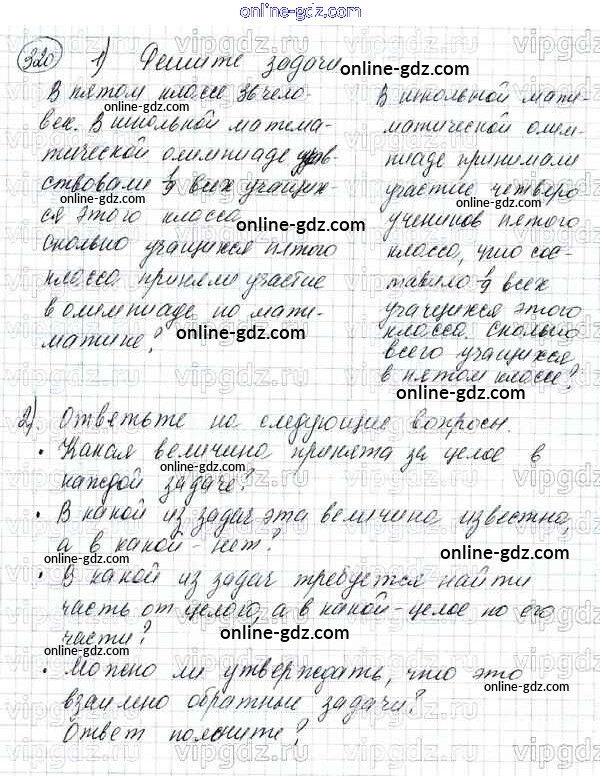 online-gdz.com
320 1) Решите задачи
online-gdz.com
В пятом классе 36 чело-
век. В школьной матема-
тической олимпиаде участ-
ствовали 1/9 всех учащих-
ся этого класса.
Сколько учащихся пятого
класса приняли участие
в олимпиаде по мате-
матике?
В школьной мате-
матической олим-
пиаде принимали
участие четверо
учеников пятого
класса, что сос-
тавило 1/9 всех
учащихся этого
класса. Сколько
всего учащихся
в пятом классе?
online-gdz.com
online-gdz.com
online-gdz.com
online-gdz.com
online-gdz.com
2). Ответьте на следующие вопросы.
• Какая величина принята за целое в
каждой задаче?
online-gdz.com
• В какой из задач эта величина известна,
а в какой - нет?
online-gdz.com
• В какой из задач требуется найти
часть от целого, а в какой - целое по его
части?
online-gdz.com
• Можно ли утверждать, что это
взаимно обратные задачи?
online-gdz.com
Ответ поясните?
online-gdz.com
vipgdz.ru